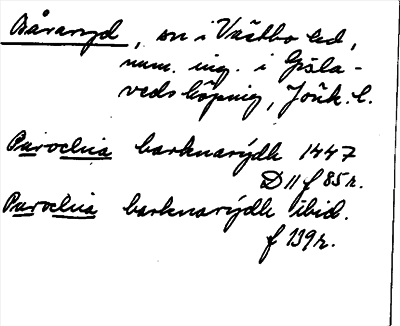 Båraryd, sn i Västbo hd,
num. ing. i Gisla-
vedsköping, Jönk. l.
Parochia barknarydh 1447
D 11 f 85 r.
Parochia barknarydh ibid.
f 139 r.